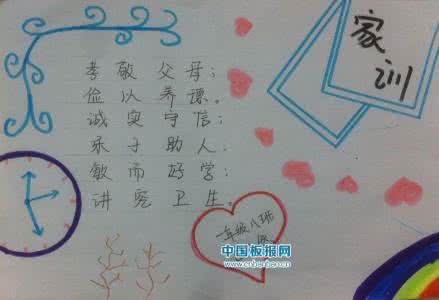 家
训
孝敬父母；
俭以养德。
诚实守信；
乐于助人；
敏而好学；
讲究卫生。
一年级八班
中国板报网
www.cnbanbao.cn